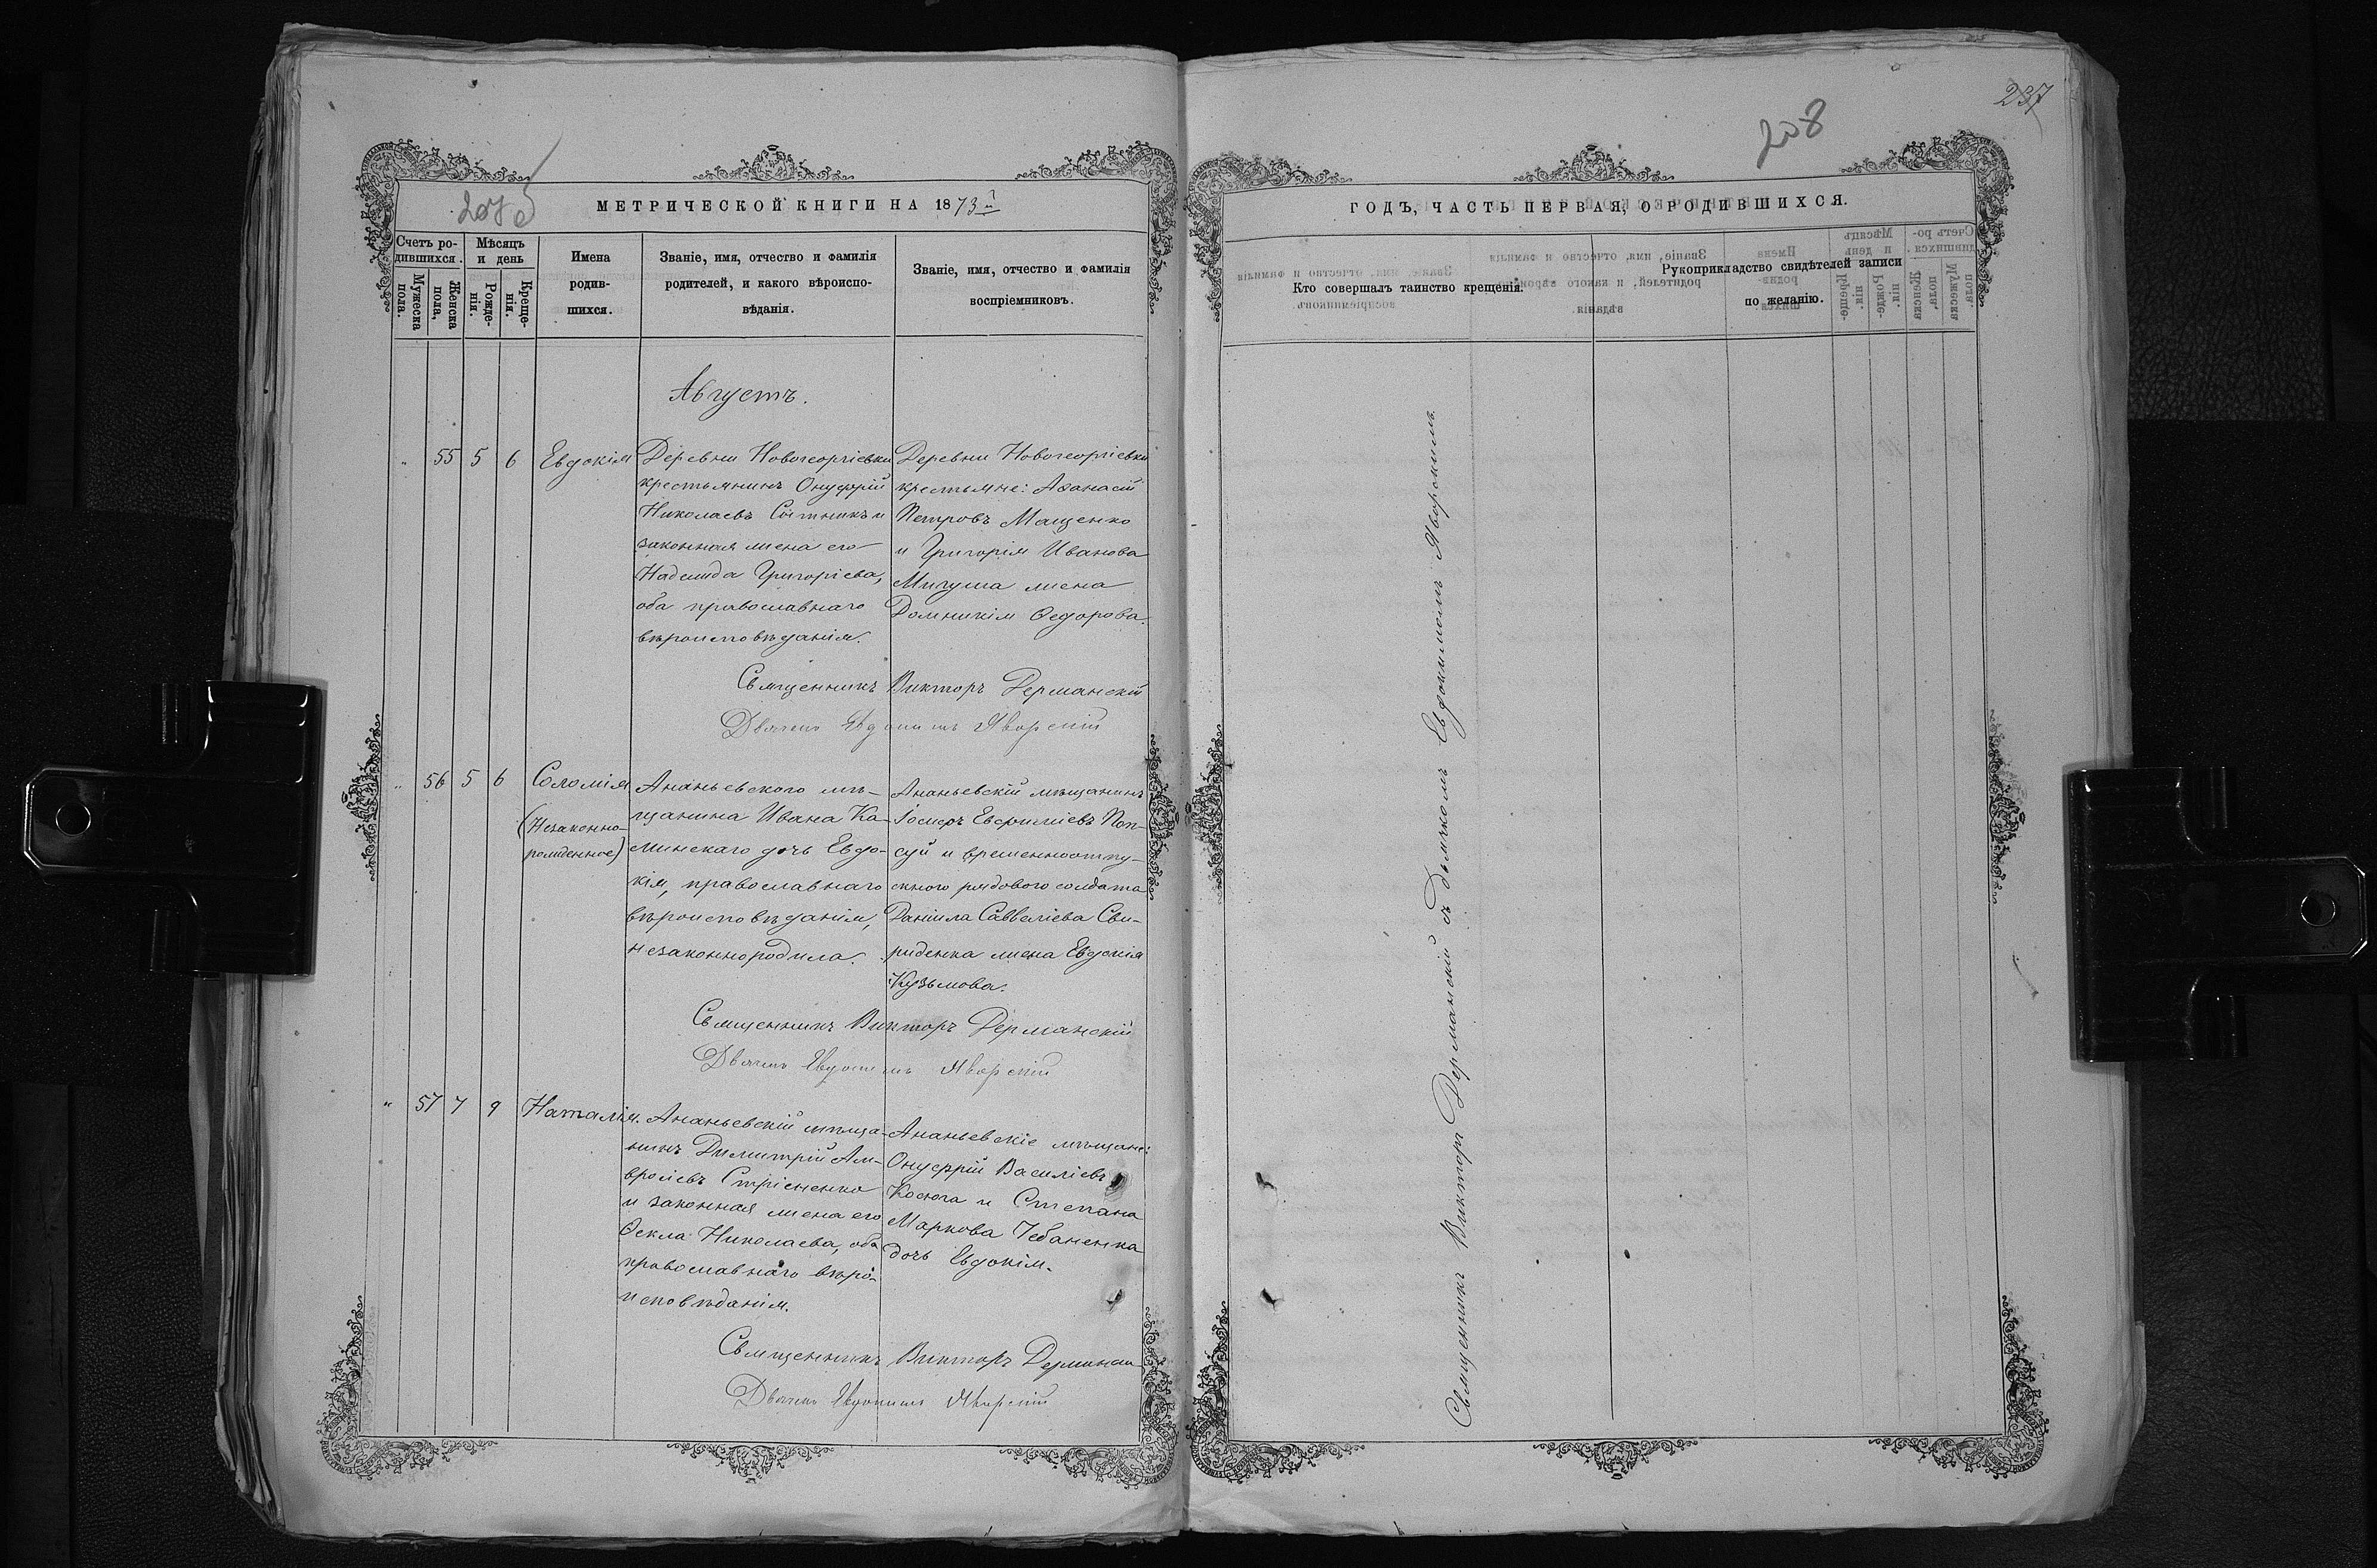 237
208
МЕТРИЧЕСКОЙ КНИГИ НА 1873й
ГОДЪ, ЧАСТЬ ПЕРВАЯ, О РОДИВШИХСЯ.
Счетъ ро-
дившихся.
Мужеска пола.
Женска пола,
Мѣсяцъ
и день
Рожде-
нія.
Креще-
нія.
Имена
родив-
шихся.
Званіе, имя, отчество и фамилія
родителей, и какого вѣроиспо-
вѣданія.
Званіе, имя, отчество и фамилія
воспріемниковъ.
Кто совершалъ таинство крещенія.
Рукоприкладство свидѣтелей записи
по желанію.
Августъ.
" 55 5 6 Евдокія
Деревни Новогеоргіевки
крестьянинъ Онуфрій
Николаевъ Сытникъ и
законная жена его
Надежда Григоріева,
оба православнаго
вѣроисповѣданія.
Деревни Новогеоргіевки
крестьяне: Аѳанасій
Петровъ Мащенко
и Григорія Иванова
жена
Домникія Ѳедорова.
Священникъ Викторъ Дерманскій
Дьячекъ Евдокимъ Яворскій
" 56 5 6 Соломія
(Незаконно-
рожденное)
Ананьевского мѣ-
щанина Ивана Ка-
минскаго дочь Евдо-
кія, православнаго
вѣроисповѣданія,
незаконнородила.
Ананьевскій мѣщанинъ
Іосифъ Евфиміевъ Поп-
суй и временноотпу-
скного рядового солдата
Даніила Савеліева Сви-
риденка жена Евдокія
Кузьмова.
Священникъ Викторъ Дерманскій
Дьячекъ Евдокимъ Яворскій
" 57 7 9 Наталія.
Ананьевскій мѣща-
нинъ Димитрій Ам-
вросіевъ
и законная жена его
Ѳекла Николаева, оба
православнаго вѣро-
исповѣданія.
Ананьевскіе мѣщане:
Онуфрій Василіевъ
Косюга и Степана
Маркова Чебаненка
дочь Евдокія.
Священникъ Викторъ Дерманскій
Дьячекъ Евдокимъ Яворскій
Священникъ Викторъ Дерманскій съ дьячкомъ Евдокимомъ Яворскимъ.